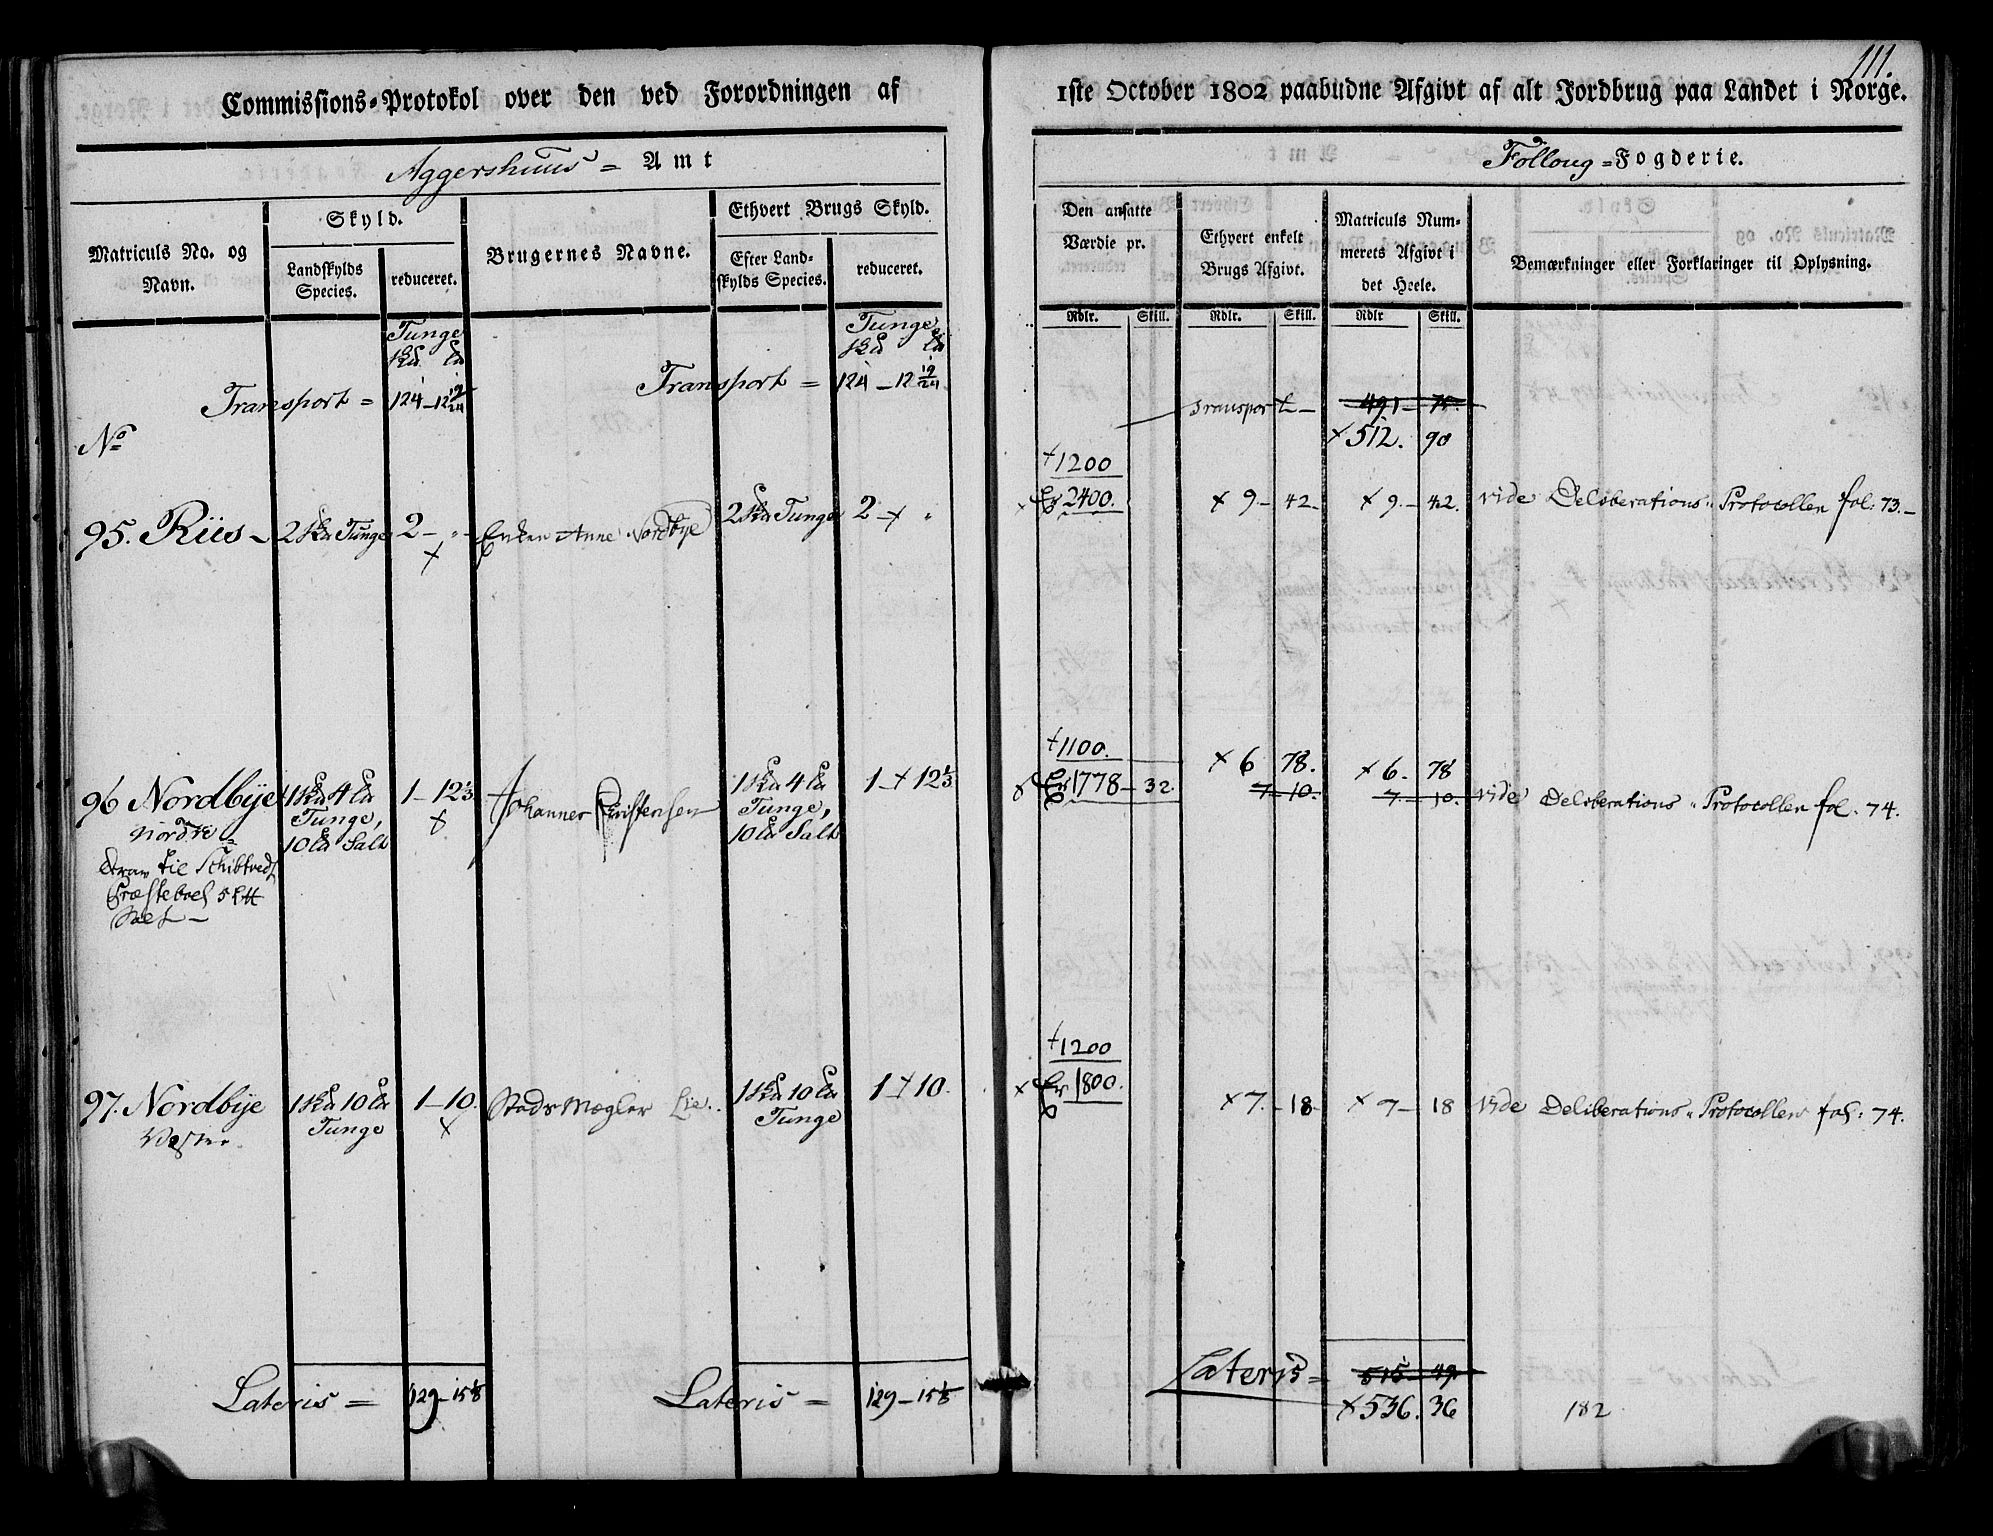 111.
Commissions-Protokol over den ved Forordningen af
1ste October 1802 paabudne Afgivt af alt Jordbrug paa Landet i Norge.
Aggershuus = Amt
Folloug = Fogderie.
Matriculs No. og Navn.
Skyld.
Landskylds Species.
reduceret.
Brugernes Navne.
Ethvert Brugs Skyld.
Efter Landskylds Species.
reduceret.
Den ansatte Værdie pr.
Ethvert enkelt Brugs Afgivt.
Matriculs Nummerets Afgivt i det Heele.
Bemærkninger eller Forklaringer til Oplysning.
Rdlr. Skill. Rdlr. Skill. Rdlr Skill.
Tunge
Tunge
Transport = 124 – 12 19/24
Transport = 124 – 12 19/24
Transport – 491 – 75.
× 512. 90
No
95. Riis – 2 Tunge 2 – " – Enken Anne Nordbye 2 Tunge 2 – × "
+ 1200
2400. × 9 – 42 – × 9 – 42. vide Deliberations Protocollen fol: 73. –
96 Nordbye 1 4 Tunge, 10 Salt 1 – 12 1/3 Johannes Christensen 1 4 Tunge, 10 Salt 1 × 12 1/3
Nordre
til Schibtvedt
Præsteboel 5
Salt –
+ 1100.
1778 – 32. × 6 78. × 6. 78
7 – 10. 7 – 10. vide Deliberations Protocollen fol. 74.
97. Nordbye 1 10 Tunge 1 – 10. Stads Mægler Lie. 1 10 Tunge 1 × 10.
Vester.
+ 1200
1800. × 7. – 18 × 7 – 18 vide Deliberations Protocollen fol: 74.
Lateris = 129 – 15 1/8
Lateris = 129 – 15 1/8
Lateris = 515 – 49
× 536. 36
182